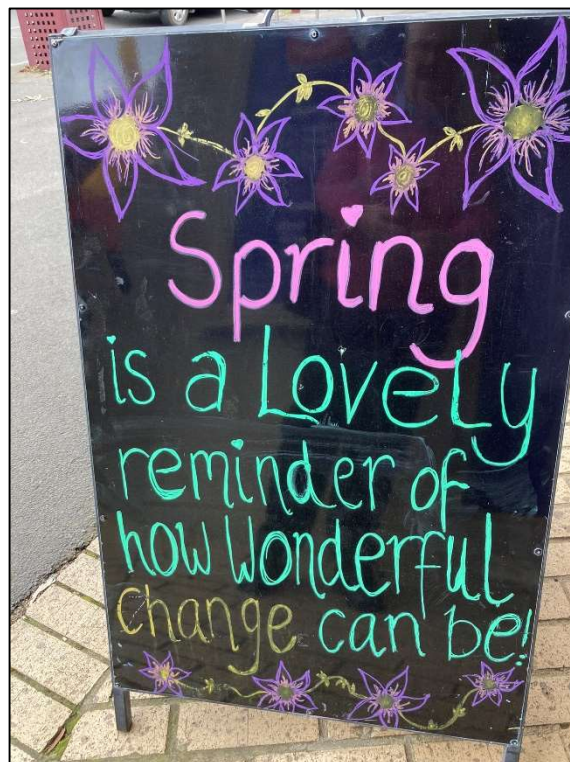 Spring
is a Lovely
reminder of
how Wonderful
Change can be!